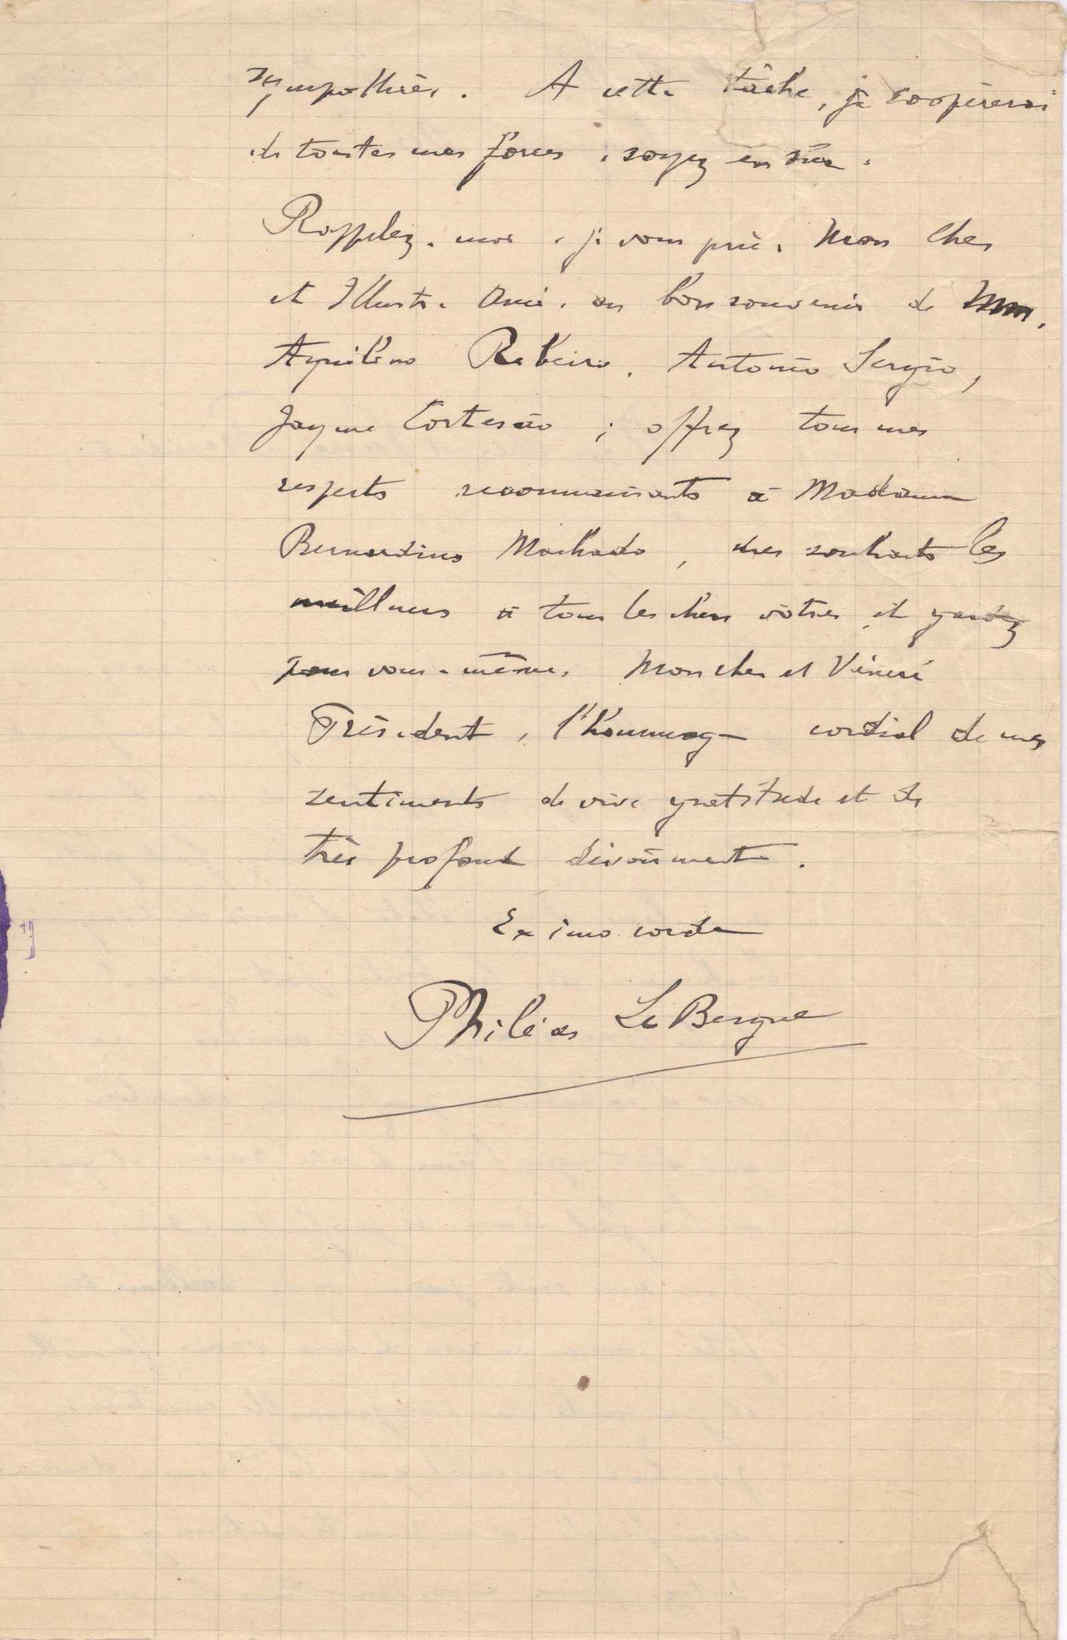 sympathies. A cette tâche, je coopérerai
de toutes mes forces, soyez en sûr.
Rappelez-moi, je vous prie, Mon cher
et Illustre Ami, au bon souvenir de Mm.
Aquilino Ribeiro, Antonio Sergio,
Jayme Cortesão ; offrez tous mes
respects reconnaissants à Madame
Bernardino Machado, mes souhaits les
meilleurs à tous les chers vôtres et gardez
pour vous-même, Mon cher et Vénéré
Président, l'hommage cordial de mes
sentiments de vive gratitude et de
très profond dévoûment.
Ex imo corde
Philéas Le Besgue